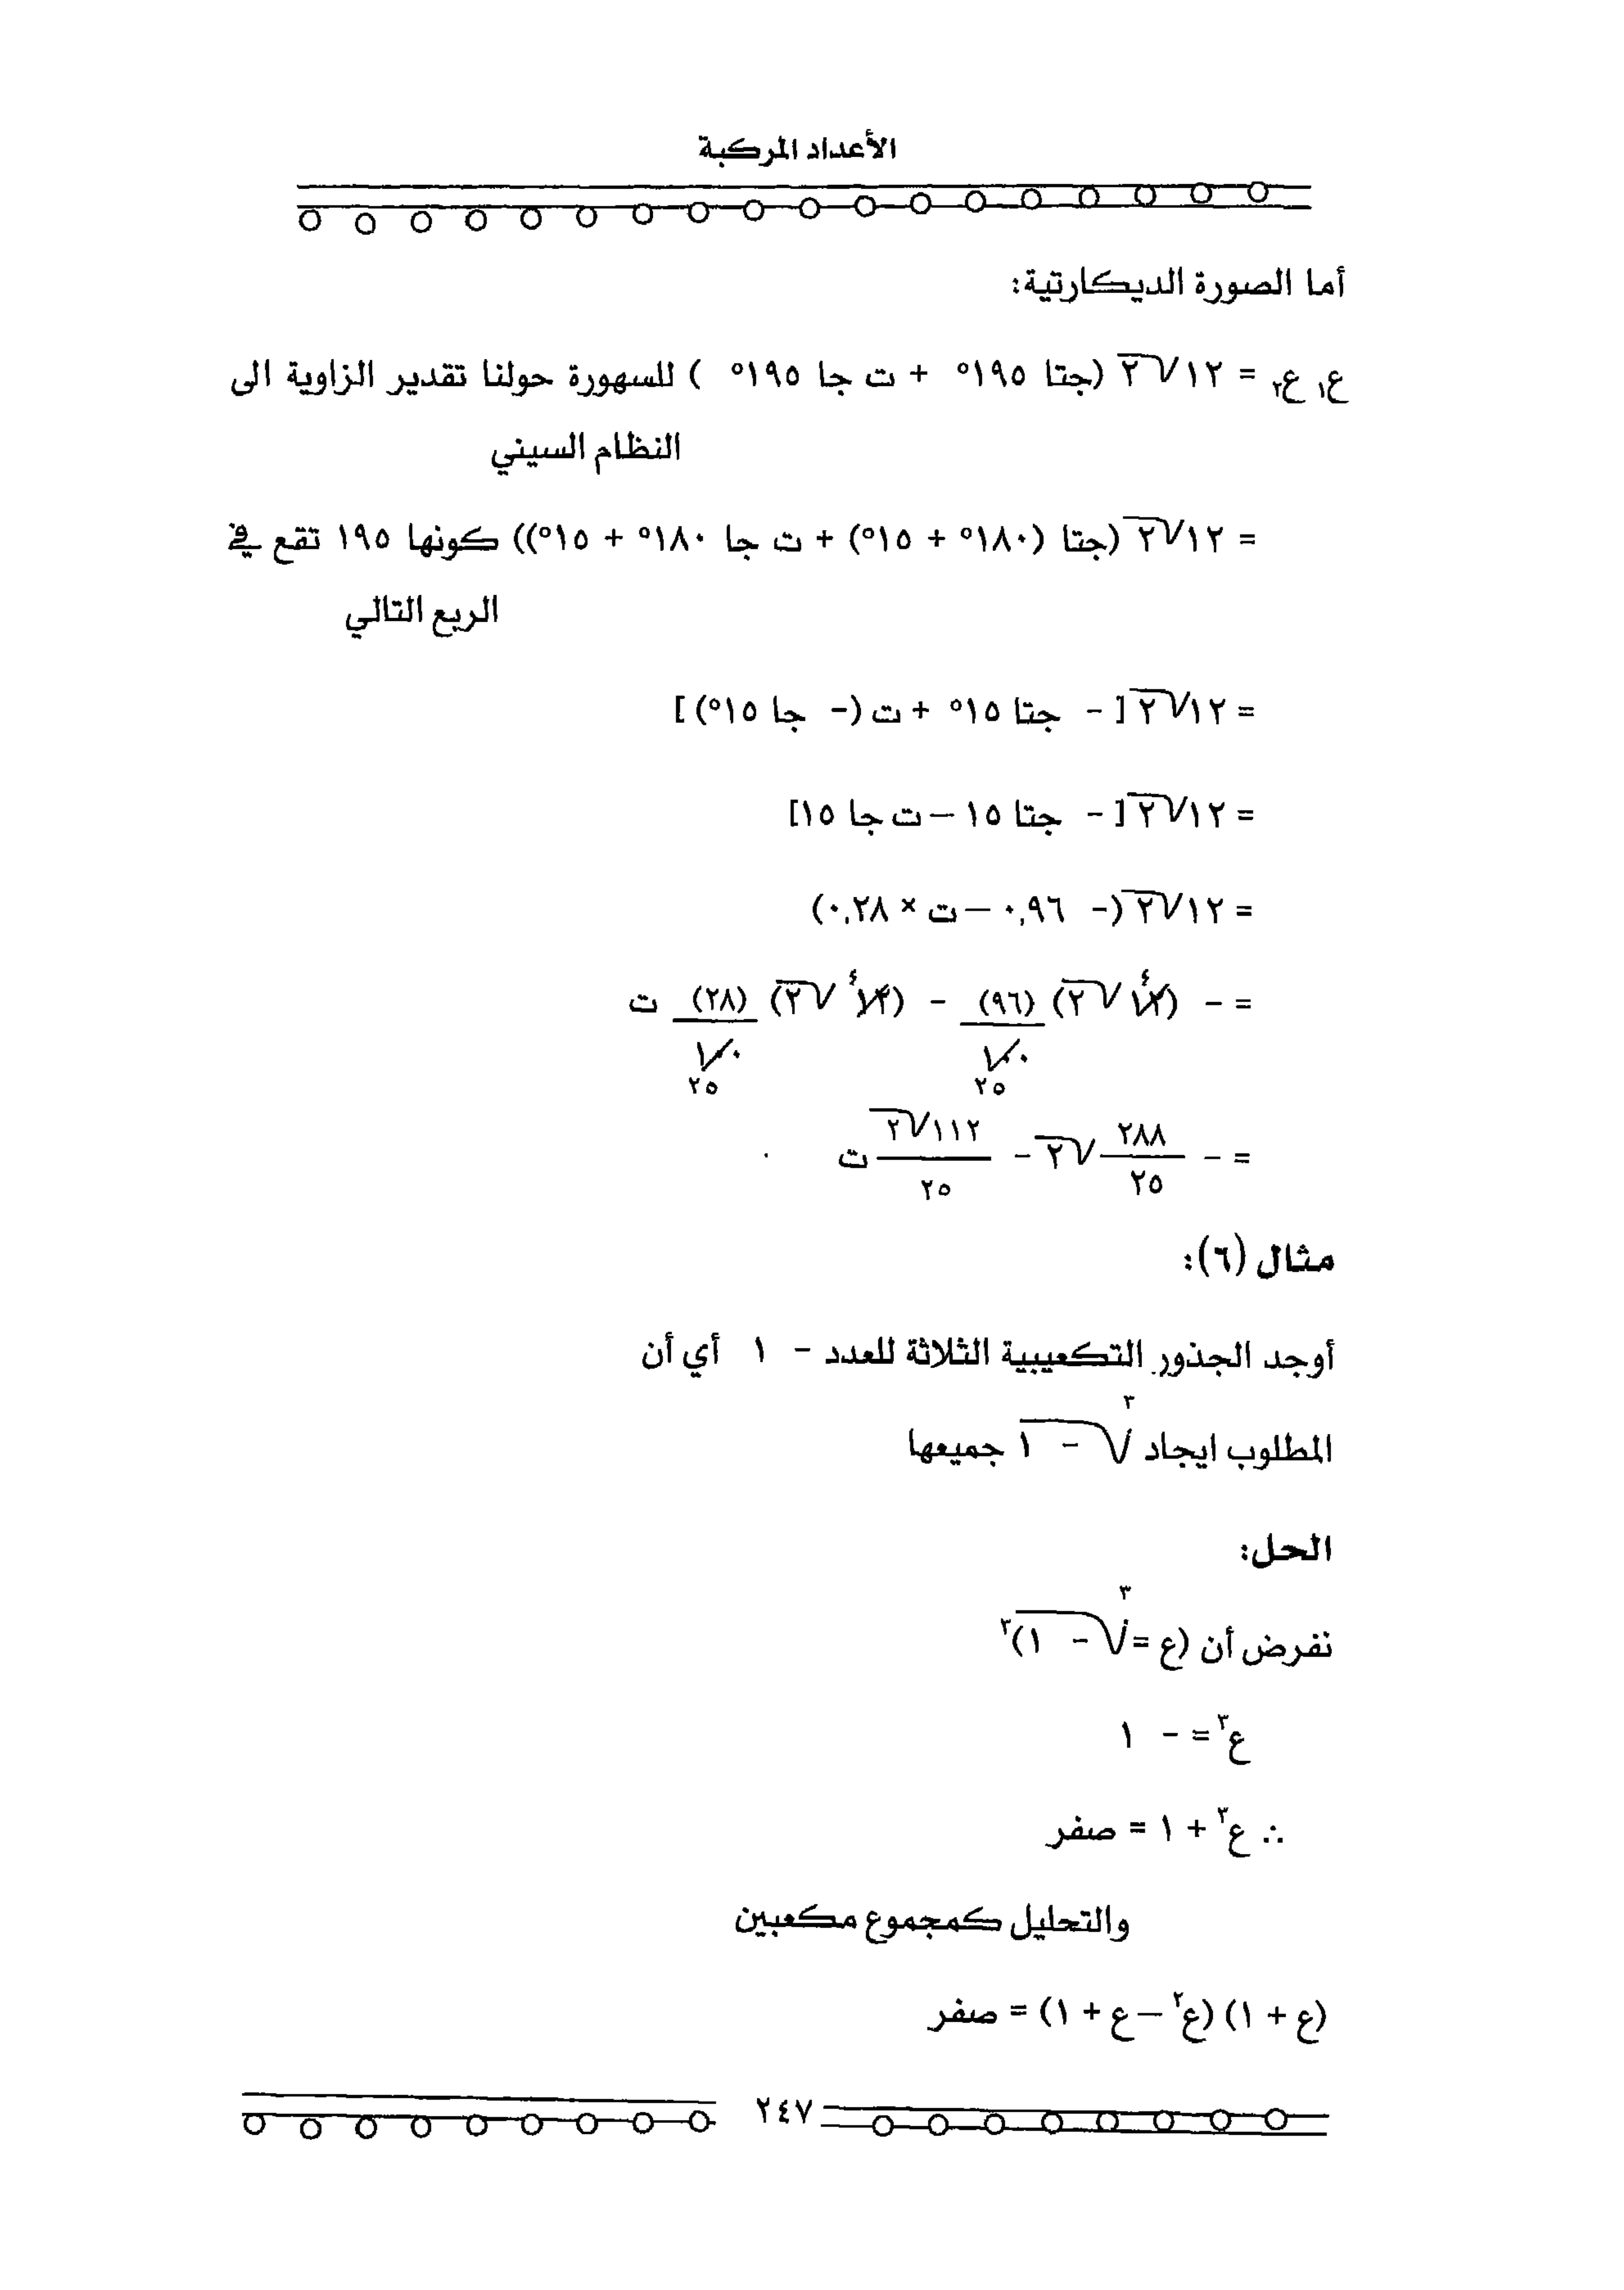 الأعداد المركبة
أما الصورة الديكارتية:
ع١ ع٢ = ١٢√٢ (جتا ١٩٥° + ت جا ١٩٥° ) للسهورة حولنا تقدير الزاوية الى
النظام السيني
= ١٢√٢ (جتا (١٨٠° + ١٥°) + ت جا ١٨٠° + ١٥°)) كونها ١٩٥ تقع في
الربع التالي
= ١٢√٢ [ - جتا ١٥° + ت (- جا ١٥°) ]
= ١٢√٢ [ - جتا ١٥ – ت جا ١٥]
= ١٢√٢ (- ٠,٩٦ – ت × ٠,٢٨)
٤ ٤
= - (١٢ √٢) (٩٦) - (١٢ √٢) (٢٨) ت
١٠٠ ١٠٠
٢٥ ٢٥
= - ٢٨٨/٢٥ √٢ - ١١٢√٢/٢٥ ت
مثال (٦):
أوجد الجذور التكعيبية الثلاثة للعدد - ١ أي أن
المطلوب ايجاد ∛(- ١) جميعها
الحل:
نفرض أن (ع = ∛(- ١))³
ع³ = - ١
∴ ع³ + ١ = صفر
والتحليل كمجموع مكعبين
(ع + ١) (ع² – ع + ١) = صفر
٢٤٧